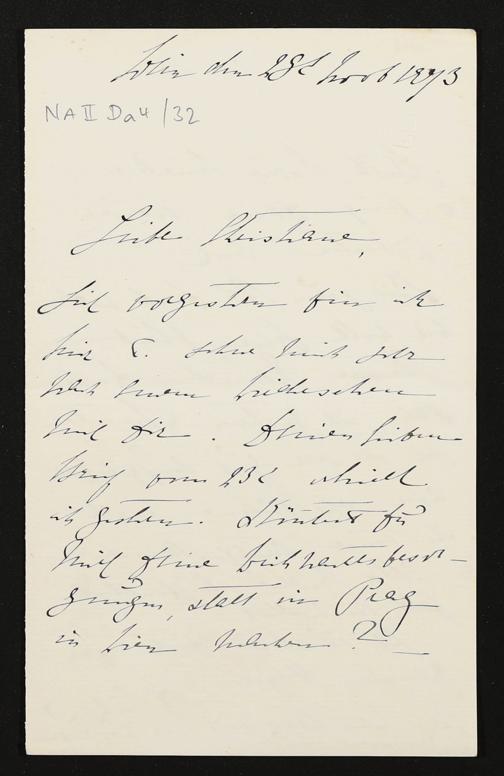 Wien den 28t Novb 1893
NA II Da 4 / 32
Liebe Christiane,
Seit vorgestern bin ich
hier u. sehne mich sehr
nach einem Wiedersehen
mit Dir. Deinen lieben
Brief vom 23t erhielt
ich gestern. Könntest Du
nicht Deine Weihnachtsbesor-
gungen, statt in Prag
in Wien machen? –